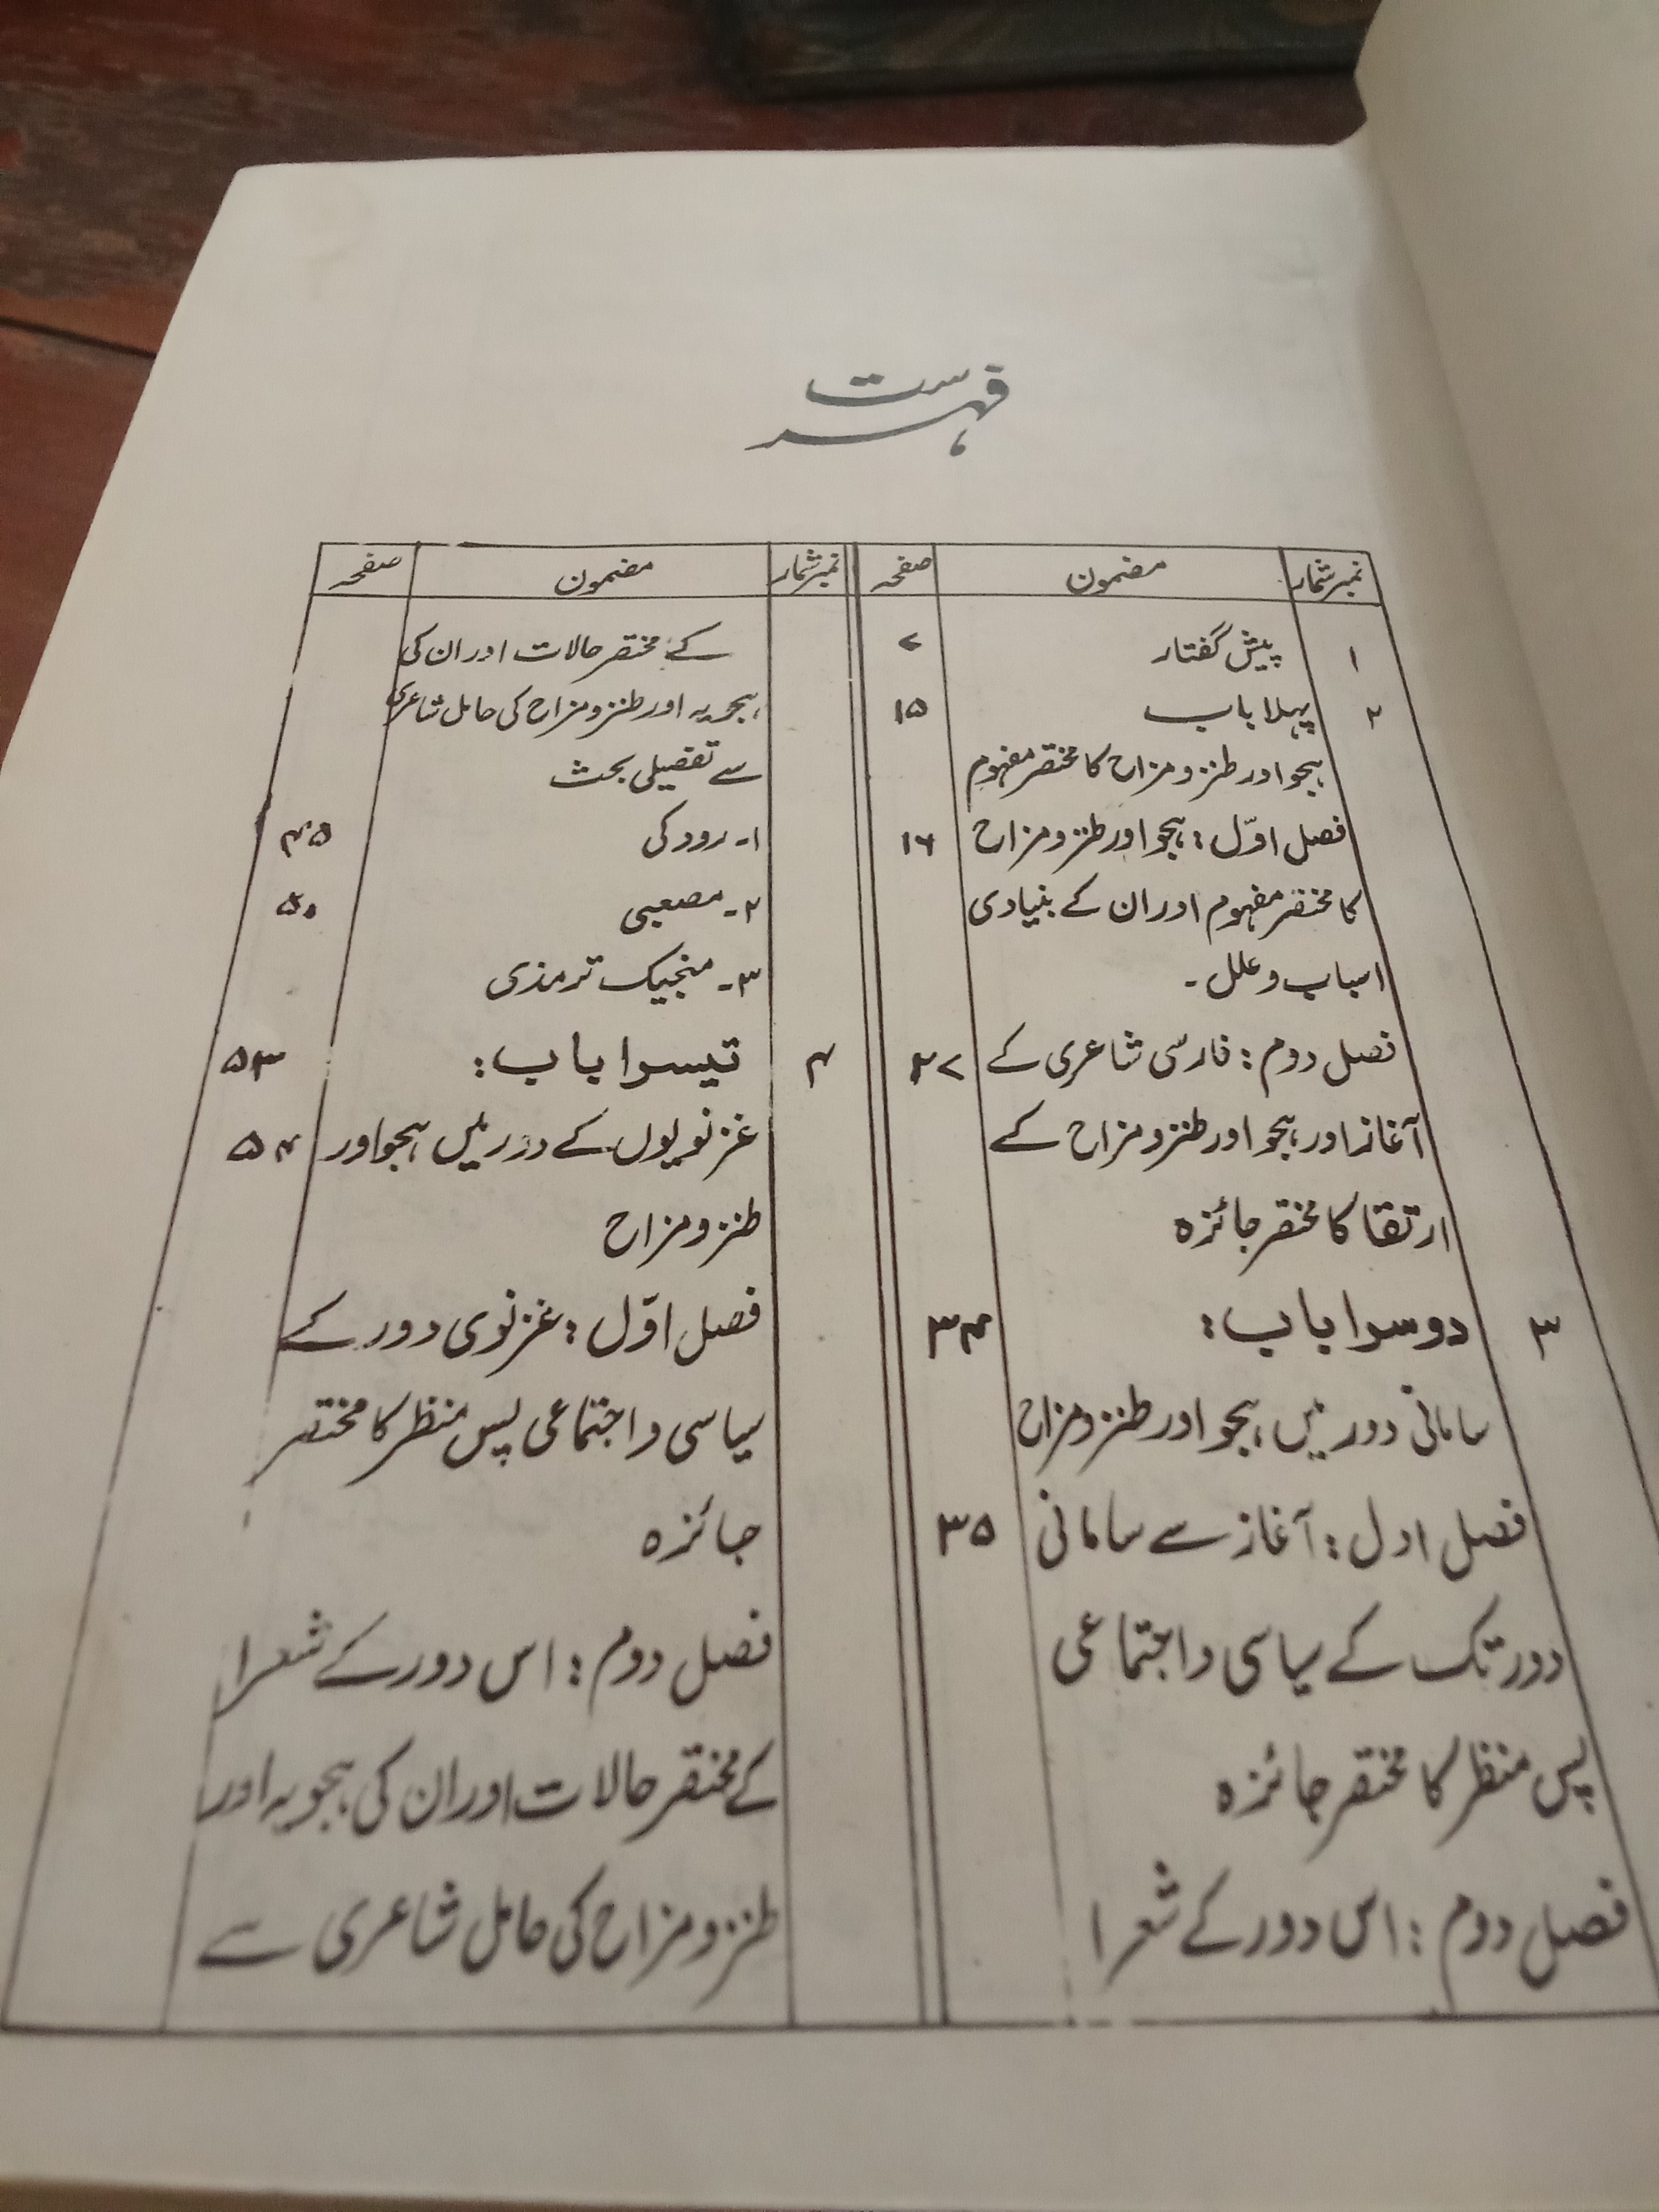 فہرست
نمبر شمار مضمون صفحہ
۱ پیش گفتار ۷
۲ پہلا باب ۱۵
ہجو اور طنز و مزاح کا مختصر مفہوم
فصل اوّل : ہجو اور طنز و مزاح ۱۶
کا مختصر مفہوم اور ان کے بنیادی
اسباب و علل ۔
فصل دوم : فارسی شاعری کے ۲۷
آغاز اور ہجو اور طنز و مزاح کے
ارتقا کا مختصر جائزہ
۳ دوسرا باب : ۳۴
سامانی دور میں ہجو اور طنز و مزاح
فصل اول : آغاز سے سامانی ۳۵
دور تک کے سیاسی و اجتماعی
پس منظر کا مختصر جائزہ
فصل دوم : اس دور کے شعرا
نمبر شمار مضمون صفحہ
کے مختصر حالات اور ان کی
ہجویہ اور طنز و مزاح کی حامل شاعری
سے تفصیلی بحث
۱۔ رودکی ۴۵
۲۔ مصعبی ۵۰
۳۔ منجیک ترمذی
۴ تیسرا باب : ۵۳
غزنویوں کے دور میں ہجو اور ۵۴
طنز و مزاح
فصل اوّل : غزنوی دور کے
سیاسی و اجتماعی پس منظر کا مختصر
جائزہ
فصل دوم : اس دور کے شعرا
کے مختصر حالات اور ان کی ہجویہ اور
طنز و مزاح کی حامل شاعری سے